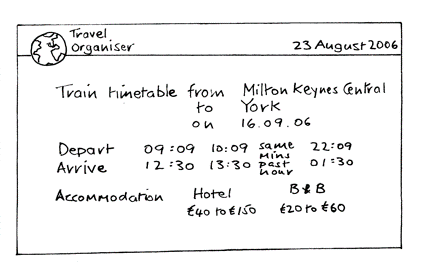 Travel
Organiser
23 August 2006
Train timetable from Milton Keynes Central
to York
on 16.09.06
Depart 09:09 10:09 same mins past hour 22:09
Arrive 12:30 13:30 01:30
Accommodation Hotel B&B
£40 to £150 £20 to £60